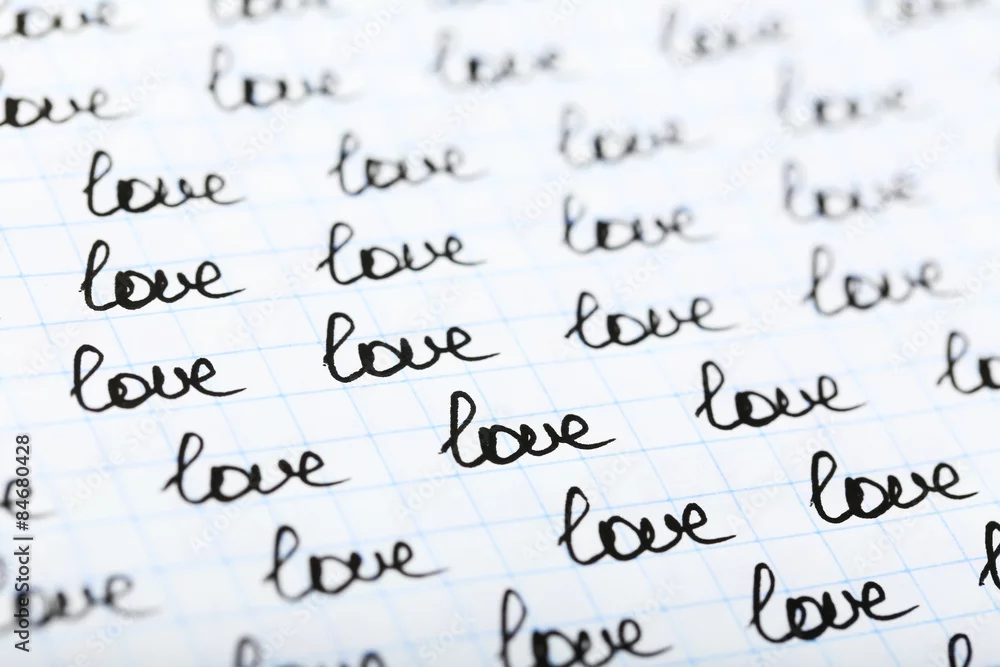 love love
love love love love
love love love love
love love love love
love love love love
e love love love lo
love love love love
love love love l
l
Adobe Stock | #84680428